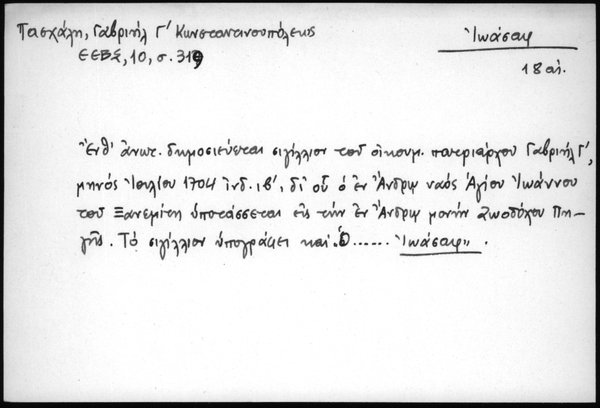 Πασχάλη, Γαβριήλ Γ' Κωνσταντινουπόλεως
ΕΕΒΣ, 10, σ. 319
Ἰωάσαφ
18 αἰ.
"Ἔνθ' ἀνωτ. δημοσιεύεται σιγίλλιον τοῦ οἰκουμ. πατριάρχου Γαβριήλ Γ',
μηνός Ἰουλίου 1704 ἰνδ. ιβ', δι' οὗ ὁ ἐν Ἄνδρῳ ναός Ἁγίου Ἰωάννου
τοῦ Ξανεμίτη ὑποτάσσεται εἰς τήν ἐν Ἄνδρῳ μονήν Ζωοδόχου Πη-
γῆς. Τό σιγίλλιον ὑπογράφει καί ὁ ...... Ἰωάσαφ".